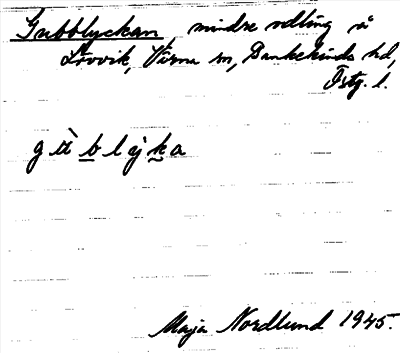 Gubblyckan, mindre odling å
Lövvik, Värna sn, Bankekinds hd,
Östg. l.
gùb̲lyk̲a
Maja Nordlund 1945.